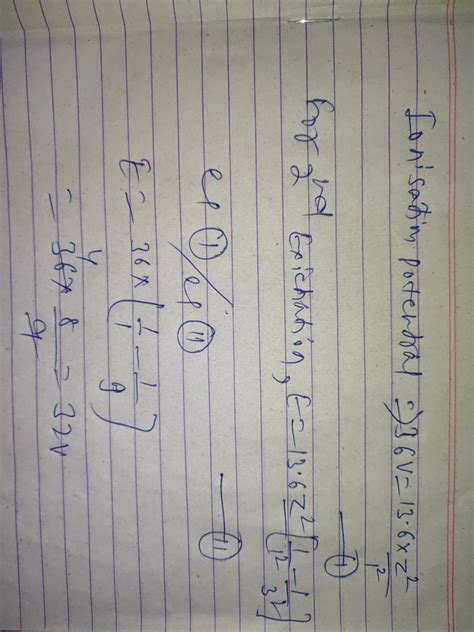 Ionisation potential ⇒ 36V = 13.6 × z²/1²
— (I)
for 2nd Exicitation, E = 13.6 z² [1/1² - 1/3²]
— (II)
eq (I) / eq (II)
E = 36 × [1/1 - 1/9]
= 36 × 8/9 = 32V
4